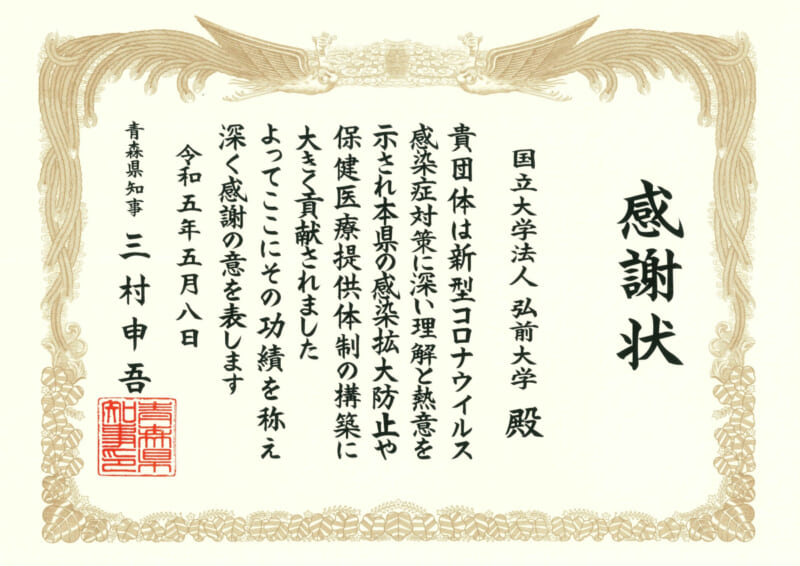 感謝状
国立大学法人 弘前大学 殿
貴団体は新型コロナウイルス
感染症対策に深い理解と熱意を
示され本県の感染拡大防止や
保健医療提供体制の構築に
大きく貢献されました
よってここにその功績を称え
深く感謝の意を表します
令和五年五月八日
青森県知事 三村申吾
青森県
知事印